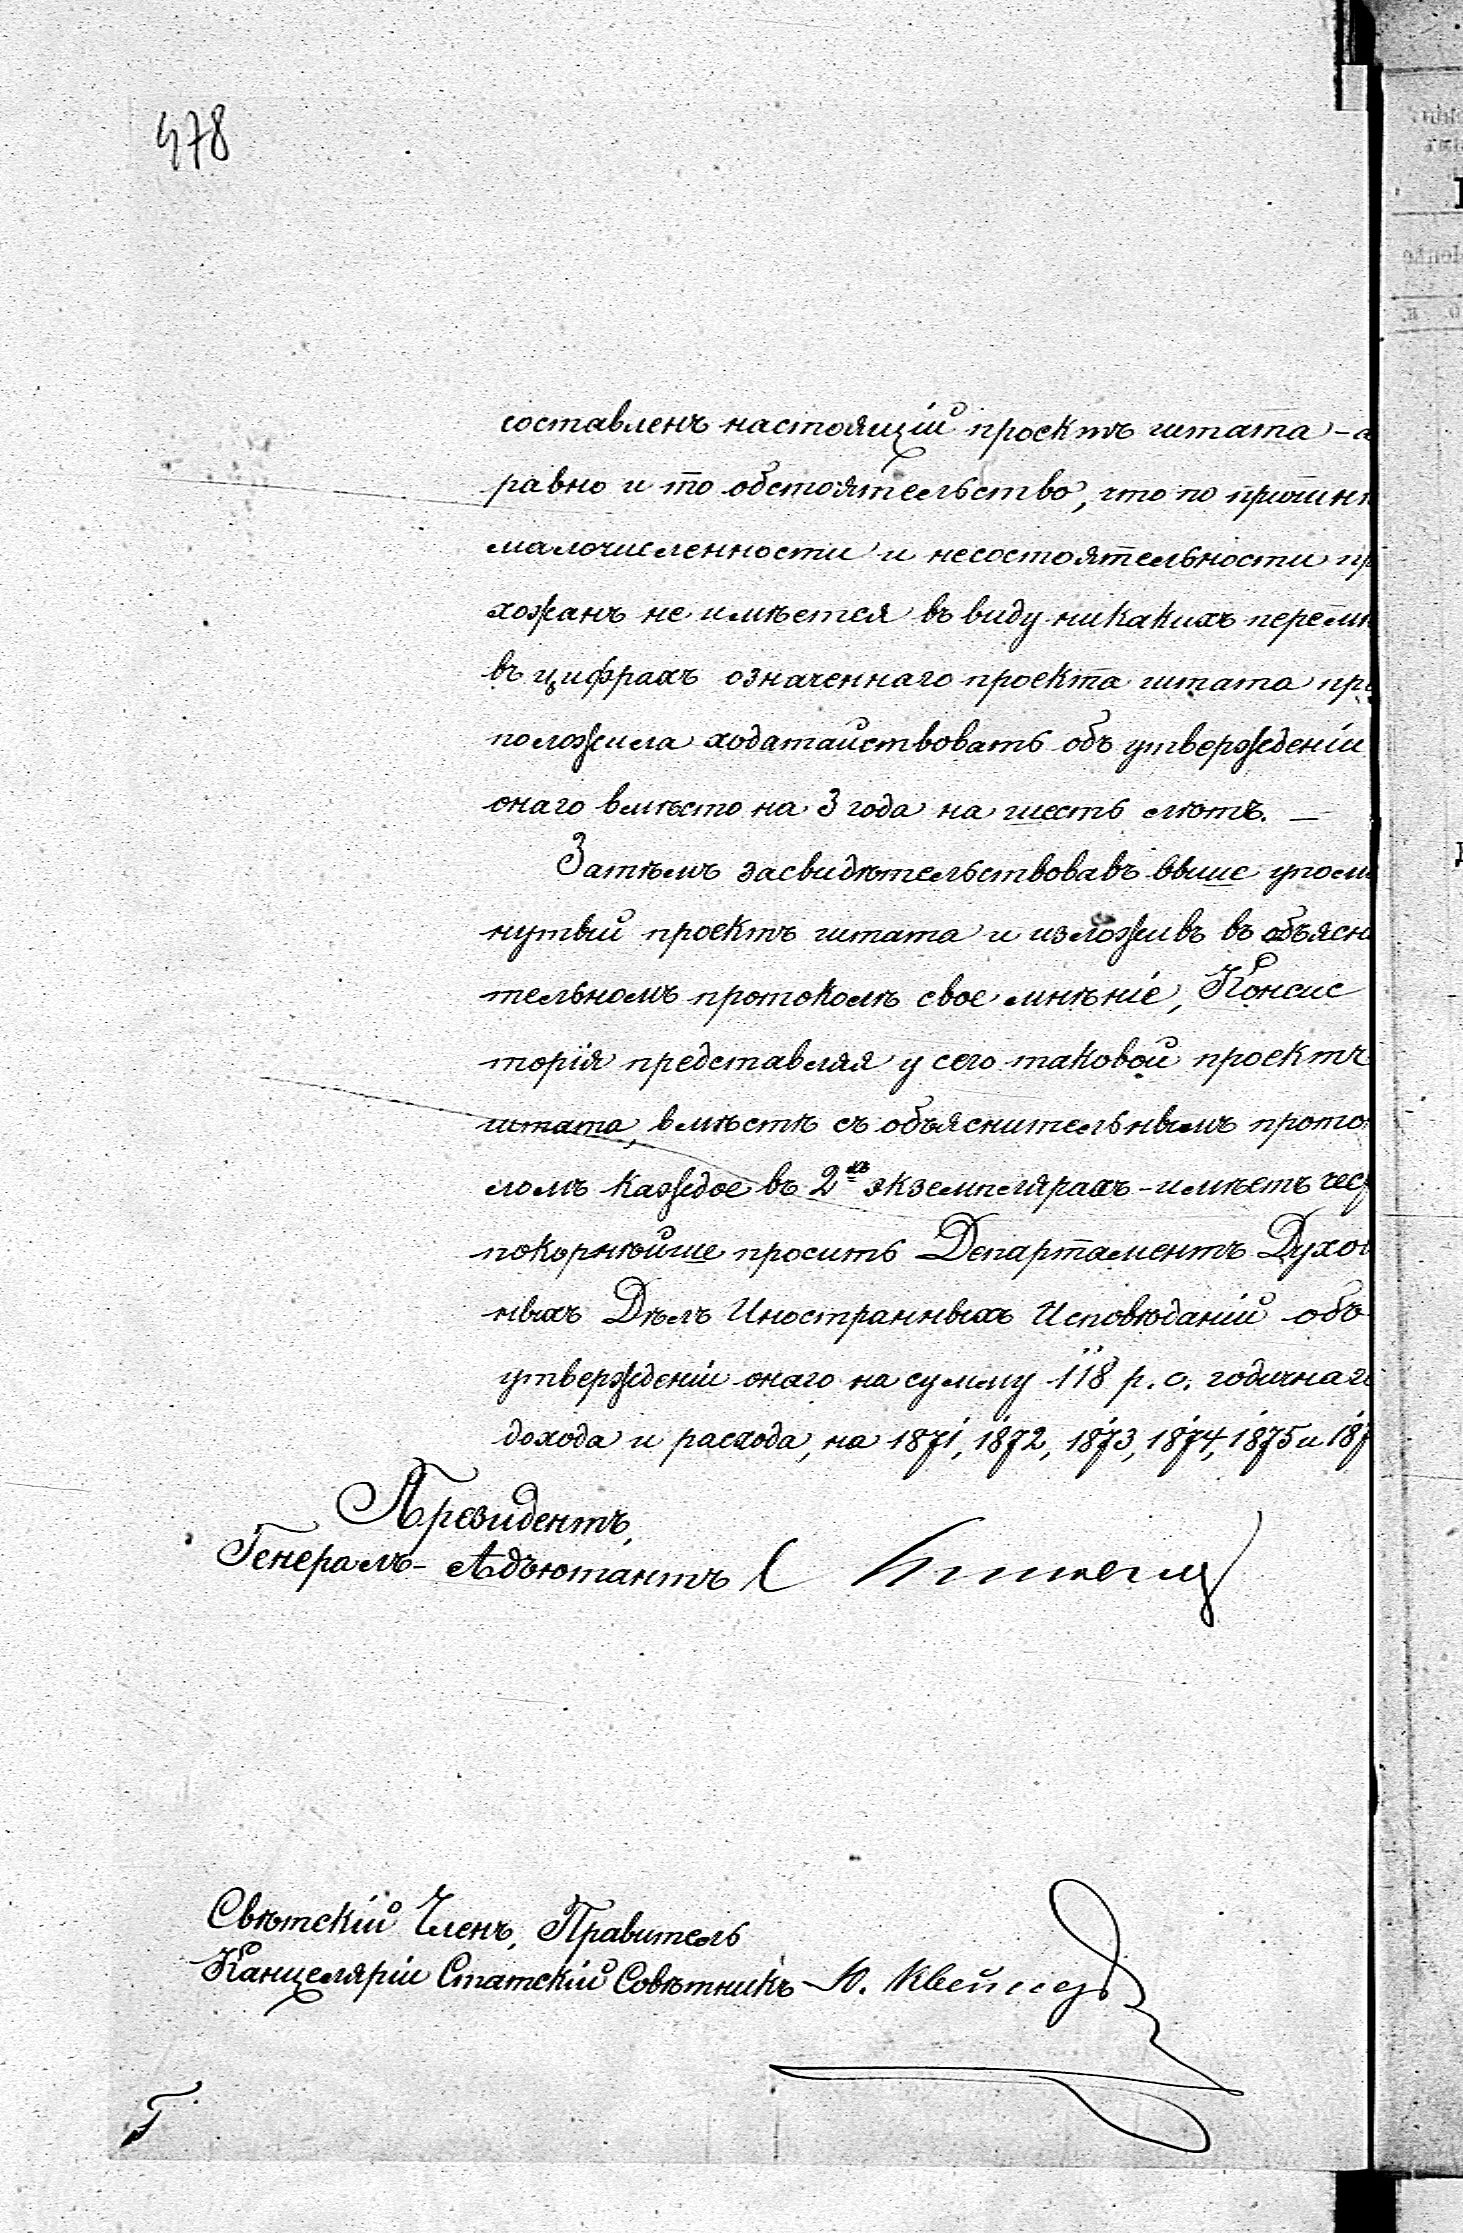 478
составленъ настоящій проектъ штата - а
равно и то обстоятельство, что по причин
малочисленности и несостоятельности пр
хожанъ не имѣется въ виду никакихъ перемѣ
въ цифрахъ означеннаго проекта штата пре
положила ходатайствовать объ утвержденіи
онаго вмѣсто на 3 года на шесть лѣтъ. —
Затѣмъ засвидѣтельствовавъ выше упомя
нутый проектъ штата и изложивъ въ объясн
тельномъ протоколѣ свое мнѣніе, Консис
торія представляя у сего таковой проектъ
штата, вмѣстѣ съ объяснительнымъ прото
ломъ каждое въ 2хъ экземплярахъ - имѣетъ чес
покорнѣйше просить Департаментъ Духов
ныхъ Дѣлъ Иностранныхъ Исповѣданій объ
утвержденіи онаго на сумму 118 р. с. годичнаго
дохода и расхода, на 1871, 1872, 1873, 1874, 1875 и 187
Президентъ,
Генералъ-Адъютантъ
Свѣтскій Членъ, Правитель
Канцеляріи Статскій Совѣтникъ Ю.